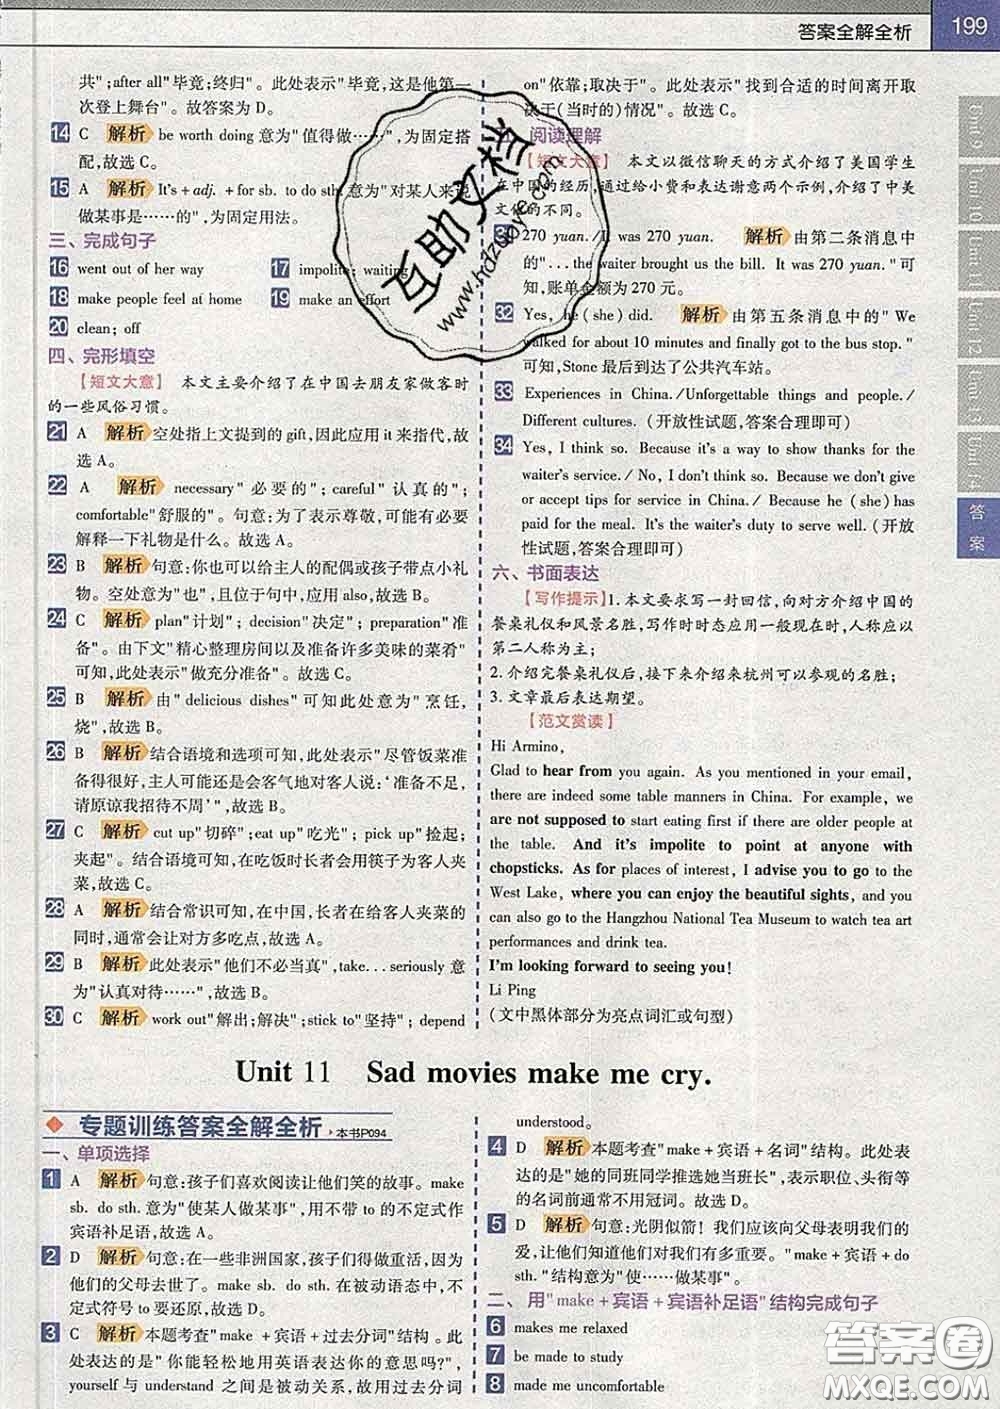 答案全解全析
199
共";after all"毕竟;终归"。此处表示"毕竟,这是他第一
次登上舞台"。故答案为 D。
14 C 解析 be worth doing 意为"值得做……",为固定搭
配,故选 C。
15 A 解析 It's + adj. + for sb. to do sth. 意为"对某人来说
做某事是……的",为固定用法。
三、完成句子
16 went out of her way 17 impolite; waiting
18 make people feel at home 19 make an effort
20 clean; off
四、完形填空
【短文大意】 本文主要介绍了在中国去朋友家做客时
的一些风俗习惯。
21 A 解析 空处指上文提到的 gift,因此应用 it 来指代,故
选 A。
22 A 解析 necessary"必要的";careful"认真的";
comfortable"舒服的"。句意:为了表示尊敬,可能有必要
解释一下礼物是什么。故选 A。
23 B 解析 句意:你也可以给主人的配偶或孩子带点小礼
物。空处意为"也",且位于句中,应用 also,故选 B。
24 C 解析 plan"计划"; decision"决定"; preparation"准
备"。由下文"精心整理房间以及准备许多美味的菜肴"
可知,此处表示"做充分准备"。故选 C。
25 B 解析 由" delicious dishes"可知此处意为"烹饪,
烧",故选 B。
26 B 解析 结合语境和选项可知,此处表示"尽管饭菜准
备得很好,主人可能还是会客气地对客人说:'准备不足,
请原谅我招待不周'",故选 B。
27 C 解析 cut up"切碎";eat up"吃光"; pick up"捡起;
夹起"。结合语境可知,在吃饭时长者会用筷子为客人夹
菜,故选 C。
28 A 解析 结合常识可知,在中国,长者在给客人夹菜的
同时,通常会让对方多吃点,故选 A。
29 B 解析 此处表示"他们不必当真",take...seriously 意
为"认真对待……",故选 B。
30 C 解析 work out"解出;解决";stick to"坚持"; depend
on"依靠;取决于"。此处表示"找到合适的时间离开取
决于(当时的)情况"。故选 C。
阅读理解
【短文大意】 本文以微信聊天的方式介绍了美国学生
在中国的经历,通过给小费和表达谢意两个示例,介绍了中美
文化的不同。
31 270 yuan. /It was 270 yuan. 解析 由第二条消息中
的"...the waiter brought us the bill. It was 270 yuan."可
知,账单金额为 270 元。
32 Yes, he (she) did. 解析 由第五条消息中的" We
walked for about 10 minutes and finally got to the bus stop. "
可知,Stone 最后到达了公共汽车站。
33 Experiences in China. /Unforgettable things and people. /
Different cultures. (开放性试题,答案合理即可)
34 Yes, I think so. Because it's a way to show thanks for the
waiter's service. / No, I don't think so. Because we can't give
or accept tips for service in China. / Because he (she) has
paid for the meal. It's the waiter's duty to serve well. (开放
性试题,答案合理即可)
六、书面表达
【写作提示】1. 本文要求写一封回信,向对方介绍中国的
餐桌礼仪和风景名胜,写作时时态应用一般现在时,人称应以
第二人称为主;
2. 介绍完餐桌礼仪后,接下来介绍来杭州可以参观的名胜;
3. 文章最后表达期望。
【范文赏读】
Hi Armino,
Glad to hear from you again. As you mentioned in your email,
there are indeed some table manners in China. For example, we
are not supposed to start eating first if there are older people at
the table. And it's impolite to point at anyone with
chopsticks. As for places of interest, I advise you to go to the
West Lake, where you can enjoy the beautiful sights, and you
can also go to the Hangzhou National Tea Museum to watch tea art
performances and drink tea.
I'm looking forward to seeing you!
Li Ping
(文中黑体部分为亮点词汇或句型)
Unit 9
Unit 10
Unit 11
Unit 12
Unit 13
Unit 14
答案
互助文档
www.hdzuoye.com
Unit 11 Sad movies make me cry.
专题训练答案全解全析 ·本书P094
一、单项选择
1 A 解析 句意:孩子们喜欢阅读让他们笑的故事。make
sb. do sth. 意为"使某人做某事",用不带 to 的不定式作
宾语补足语,故选 A。
2 D 解析 句意:在一些非洲国家,孩子们得做重活,因为
他们的父母去世了。make sb. do sth. 在被动语态中,不
定式符号 to 要还原,故选 D。
3 C 解析 本题考查"make +宾语+过去分词"结构。此
处表达的是"你能轻松地用英语表达你的意思吗?",
yourself 与 understand 之间是被动关系,故用过去分词
understood。
4 D 解析 本题考查"make+宾语+名词"结构。此处表
达的是"她的同班同学推选她当班长",表示职位、头衔等
的名词前通常不用冠词。故选 D。
5 D 解析 句意:光阴似箭! 我们应该向父母表明我们的
爱,让他们知道他们对我们有多重要。"make+宾语+do
sth."结构意为"使……做某事"。故选 D。
二、用"make+宾语+宾语补足语"结构完成句子
6 makes me relaxed
7 be made to study
8 made me uncomfortable
答案圈
MXQE.COM